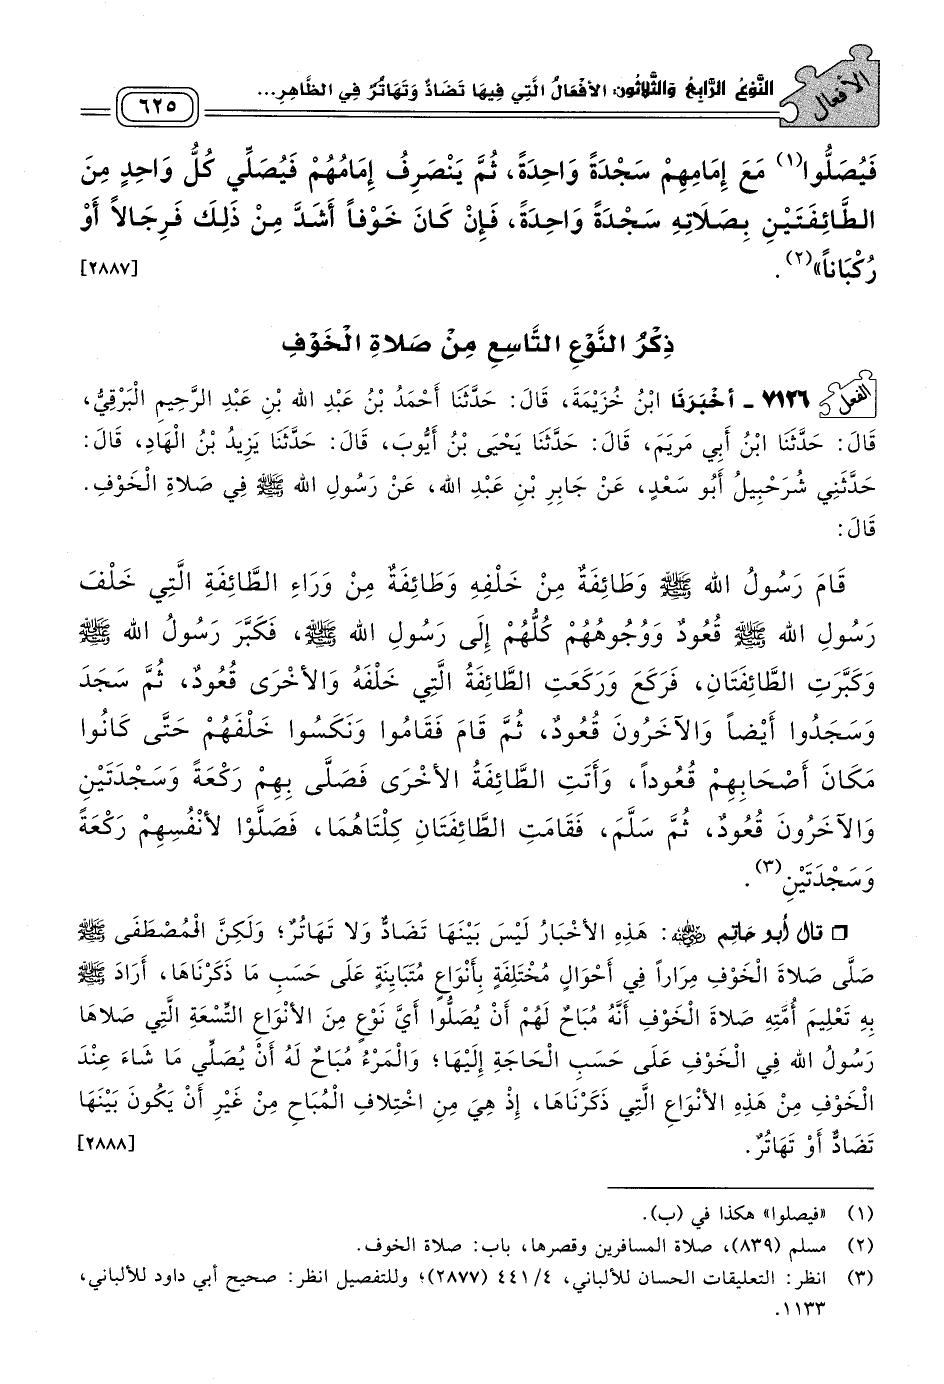 الأفعال
النَّوْعُ الرَّابِعُ وَالثَّلَاثُونَ: الأَفْعَالُ الَّتِي فِيهَا تَضَادٌ وَتَهَاتُرٌ فِي الظَّاهِرِ...
٦٢٥
فَيُصَلُّوا(١) مَعَ إِمَامِهِمْ سَجْدَةً وَاحِدَةً، ثُمَّ يَنْصَرِفُ إِمَامُهُمْ فَيُصَلِّي كُلُّ وَاحِدٍ مِنَ
الطَّائِفَتَيْنِ بِصَلَاتِهِ سَجْدَةً وَاحِدَةً، فَإِنْ كَانَ خَوْفاً أَشَدَّ مِنْ ذَلِكَ فَرِجَالاً أَوْ
رُكْبَاناً»(٢). [٢٨٨٧]
ذِكْرُ النَّوْعِ التَّاسِعِ مِنْ صَلَاةِ الْخَوْفِ
الفعل ٧١٣٦ - أخْبَرَنَا ابْنُ خُزَيْمَةَ، قَالَ: حَدَّثَنَا أَحْمَدُ بْنُ عَبْدِ الله بْنِ عَبْدِ الرَّحِيمِ الْبَرْقِيُّ،
قَالَ: حَدَّثَنَا ابْنُ أَبِي مَرْيَمَ، قَالَ: حَدَّثَنَا يَحْيَى بْنُ أَيُّوبَ، قَالَ: حَدَّثَنَا يَزِيدُ بْنُ الْهَادِ، قَالَ:
حَدَّثَنِي شُرَحْبِيلُ أَبُو سَعْدٍ، عَنْ جَابِرِ بْنِ عَبْدِ الله، عَنْ رَسُولِ الله ﷺ فِي صَلَاةِ الْخَوْفِ.
قَالَ:
قَامَ رَسُولُ الله ﷺ وَطَائِفَةٌ مِنْ خَلْفِهِ وَطَائِفَةٌ مِنْ وَرَاءِ الطَّائِفَةِ الَّتِي خَلْفَ
رَسُولِ الله ﷺ قُعُودٌ وَوُجُوهُهُمْ كُلُّهُمْ إِلَى رَسُولِ الله ﷺ، فَكَبَّرَ رَسُولُ الله ﷺ
وَكَبَّرَتِ الطَّائِفَتَانِ، فَرَكَعَ وَرَكَعَتِ الطَّائِفَةُ الَّتِي خَلْفَهُ وَالأُخْرَى قُعُودٌ، ثُمَّ سَجَدَ
وَسَجَدُوا أَيْضاً وَالآخَرُونَ قُعُودٌ، ثُمَّ قَامَ فَقَامُوا وَنَكَسُوا خَلْفَهُمْ حَتَّى كَانُوا
مَكَانَ أَصْحَابِهِمْ قُعُوداً، وَأَتَتِ الطَّائِفَةُ الأُخْرَى فَصَلَّى بِهِمْ رَكْعَةً وَسَجْدَتَيْنِ
وَالآخَرُونَ قُعُودٌ، ثُمَّ سَلَّمَ، فَقَامَتِ الطَّائِفَتَانِ كِلْتَاهُمَا، فَصَلَّوْا لأَنْفُسِهِمْ رَكْعَةً
وَسَجْدَتَيْنِ(٣).
❑ قال أبو حاتم رضي الله عنه: هَذِهِ الأَخْبَارُ لَيْسَ بَيْنَهَا تَضَادٌّ وَلَا تَهَاتُرٌ؛ وَلَكِنَّ الْمُصْطَفَى ﷺ
صَلَّى صَلَاةَ الْخَوْفِ مِرَاراً فِي أَحْوَالٍ مُخْتَلِفَةٍ بِأَنْوَاعٍ مُتَبَايِنَةٍ عَلَى حَسَبِ مَا ذَكَرْنَاهَا، أَرَادَ ﷺ
بِهِ تَعْلِيمَ أُمَّتِهِ صَلَاةَ الْخَوْفِ أَنَّهُ مُبَاحٌ لَهُمْ أَنْ يُصَلُّوا أَيَّ نَوْعٍ مِنَ الأَنْوَاعِ التِّسْعَةِ الَّتِي صَلَاهَا
رَسُولُ الله فِي الْخَوْفِ عَلَى حَسَبِ الْحَاجَةِ إِلَيْهَا؛ وَالْمَرْءُ مُبَاحٌ لَهُ أَنْ يُصَلِّيَ مَا شَاءَ عِنْدَ
الْخَوْفِ مِنْ هَذِهِ الأَنْوَاعِ الَّتِي ذَكَرْنَاهَا، إِذْ هِيَ مِنِ اخْتِلَافِ الْمُبَاحِ مِنْ غَيْرِ أَنْ يَكُونَ بَيْنَهَا
تَضَادٌّ أَوْ تَهَاتُرٌ. [٢٨٨٨]
(١) «فيصلوا» هكذا في (ب).
(٢) مسلم (٨٣٩)، صلاة المسافرين وقصرها، باب: صلاة الخوف.
(٣) انظر: التعليقات الحسان للألباني، ٤/ ٤٤١ (٢٨٧٧)؛ وللتفصيل انظر: صحيح أبي داود للألباني،
١١٣٣.